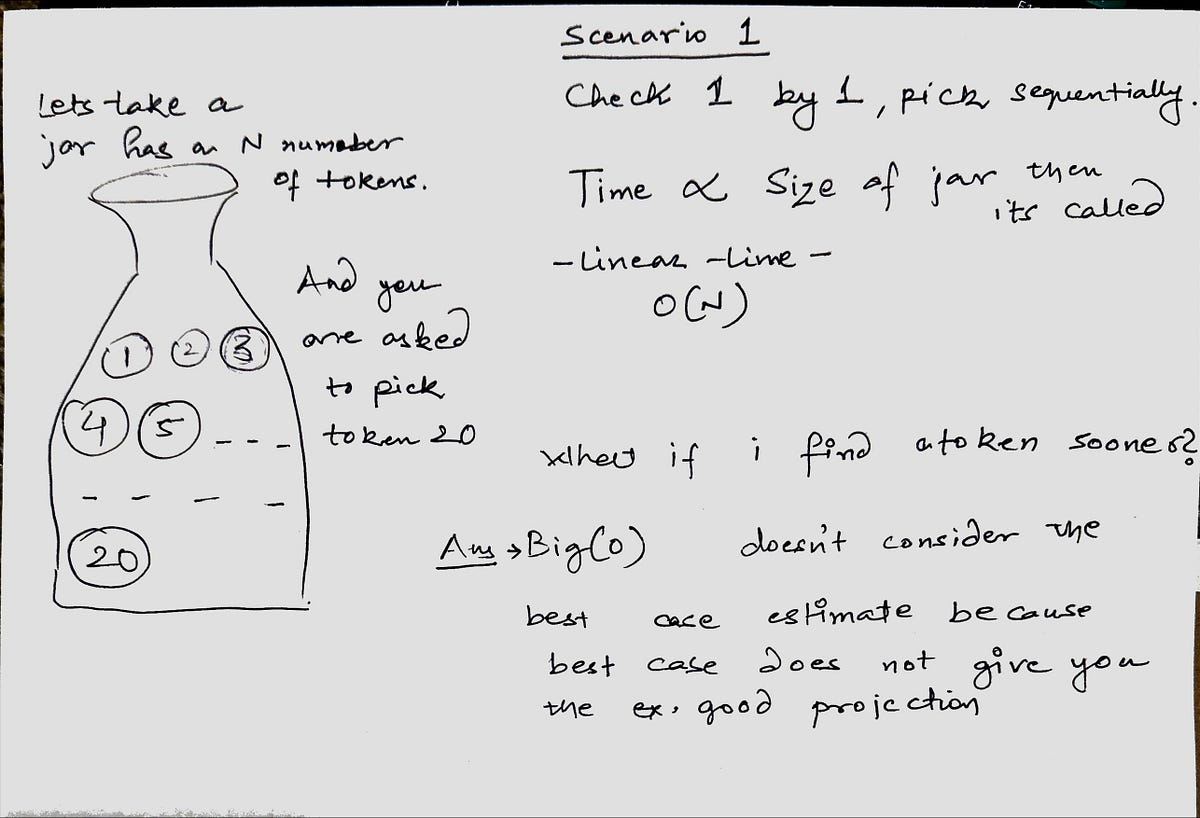 Lets take a
jar has an N numober
of tokens.
1 2 3
4 5 - - -
- - - -
20
And you
are asked
to pick
token 20
Scenario 1
Check 1 by 1, pick sequentially.
Time ∝ Size of jar then
its called
- Linear - time -
O(N)
if i find a token sooner?
Ans → Big(O) doesn't consider the
best case estimate because
best case does not give you
the ex. good projection